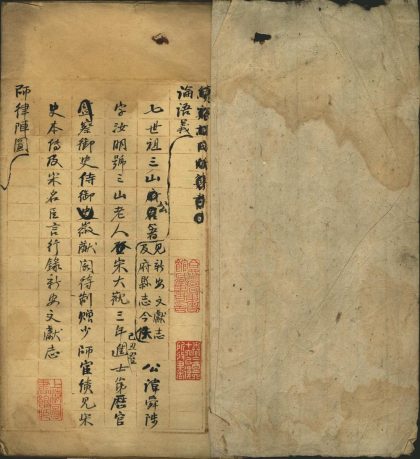 論語義
七世祖三山公著見新安文獻志及府縣志今佚 公諱舜陟
字汝明號三山老人登宋大觀三年己丑進士第歷官
監察御史侍御史徽猷閣待制贈少師宦績見宋
史本傳及宋名臣言行錄新安文獻志
師律陣圖